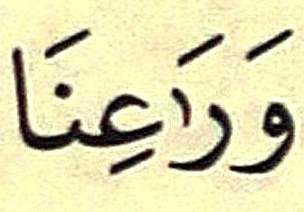 وَرَاعِنَا